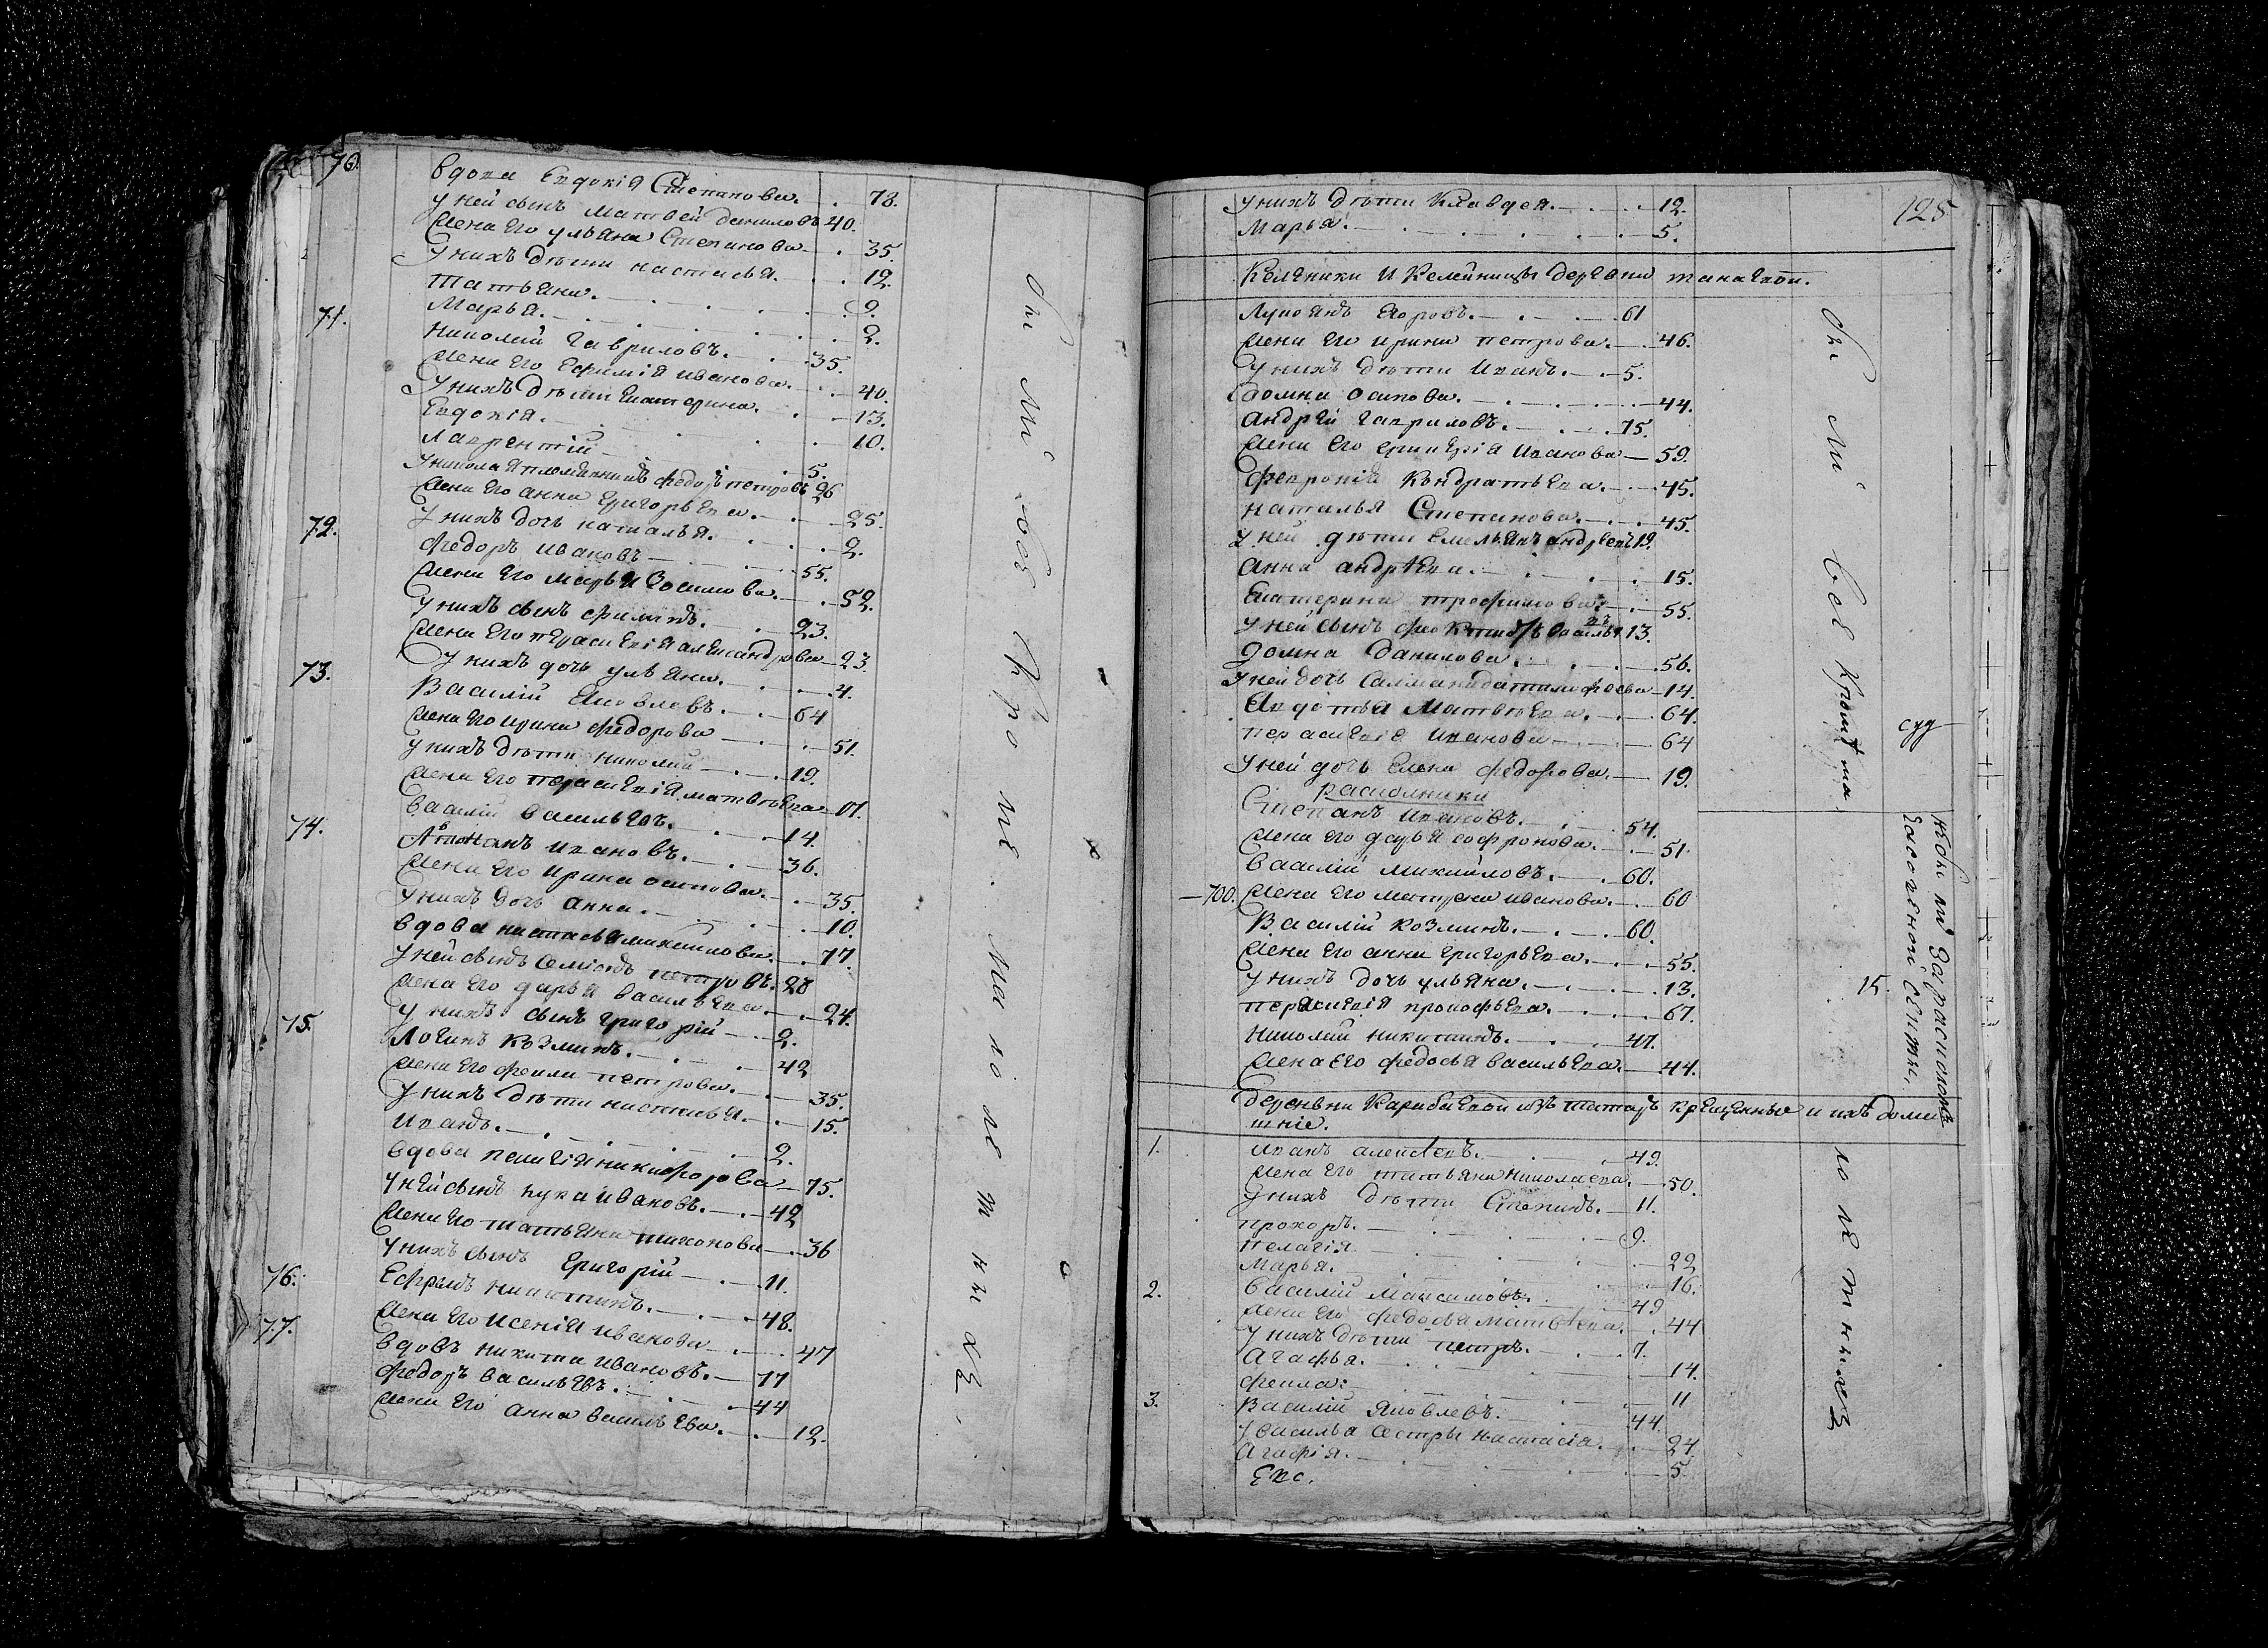 70. вдова Евдокія Степанова. 78.
у ней сынъ Матвей даниловъ 40.
жена его ульяна Степанова 35.
У нихъ дѣти настасья. 12.
татьяна. 9.
Марья. 2.
71. Николай гавриловъ. 35.
жена его Ефимія иванова. 40.
У нихъ дѣти Екатерина. 13.
Евдокія. 10.
лаврентій 5.
У никола племянникъ Федоръ петровъ 26
жена его анна григорьева. 25.
У нихъ дочь наталья. 2.
72. Федоръ ивановъ 55.
жена его марья Зосимова. 52.
у нихъ сынъ филипъ. 23.
жена его параскевія александрова 23
У нихъ дочь ульяна. 4.
73. Василій Яковлевъ. 64
жена его ирина Федорова 51.
у нихъ дѣти николай 19.
жена его параскевія матвѣева 17.
василій васильевъ. 14.
74. Ивановъ. 36.
жена его ирина осипова. 35.
У нихъ дочь анна. 10.
вдова настасья михайлова. 77.
у ней сынъ Семіонъ петровъ. 28
жена его дарья васильева 24.
у нихъ сынъ григорій 2.
75. Логинъ козминъ. 42
жена его фекла петрова. 35.
У нихъ дѣти настасья. 15.
Иванъ. 2.
вдова пелагія никифорова 75.
у ней сынъ лука ивановъ. 42
жена его татьяна тихонова 36
у нихъ сынъ Григорій 11.
76. Ефремъ никитинъ. 48.
жена его ксенія иванова 47
77. вдовъ никита ивановъ. 77
федоръ васильевъ. 44
жена его анна васильева. 12.
Сіи всѣ кромѣ малолетныхъ.
125
У нихъ дѣти Клавдея. 12.
Марья. 5.
Келейники и Келейницы деревни
Лукоянъ Егоровъ. 61
жена его ирина петрова. 46.
у нихъ дѣти Иванъ. 5.
домна осипова. 44.
андрей гавриловъ. 75.
жена его иванова 59.
февронія кондратьева. 45.
наталья Степанова. 45.
у ней дѣти Емельянъ андреевъ 19.
Анна андрѣева. 15.
Екатерина трофимова. 55.
у ней сынъ васильевъ 13.
Домна данилова. 56.
у ней дочь 14.
Авдотья Матвѣева. 64.
параскевія иванова 64
у ней дочь Елена федорова. 19.
раскольники
Степанъ ивановъ. 54.
жена его дарья софронова. 51.
василій михайловъ. 60.
700. жена его матрена иванова. 60
Василій козминъ. 60.
жена его анна григорьева. 55.
у нихъ дочь ульяна. 13.
параскевія прокофьева. 67.
николай никитинъ. 47.
жена его федосья васильева. 44.
Сіи всѣ кромѣ
15.
деревни изъ татаръ крещенные и ихъ домашніе.
1. Иванъ алексѣевъ. 49.
жена его татьяна николаева. 50.
у нихъ дѣти Степанъ. 11.
прохоръ. 9.
пелагія 22
Марья. 16.
2. Василій Максимовъ. 49
жена его федосья матвѣева. 44
у нихъ дѣти петръ. 7.
Агафья. 14.
фекла: 11
3. Василій Яковлевъ. 44.
у василья сестры настасія. 24
Агафія. 5.
малолетныхъ